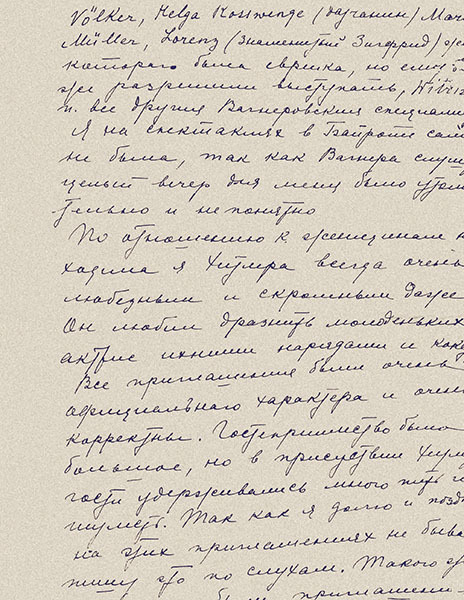 Völker, Helga Rosswenge (датчанин) Mar
Müller, Lorenz (знаменитый Зигфрид) же
котораго была еврейка, но ему
же разрешили выступать,
и. все другия Вагнеровския специали
Я на спектаклях в Байроте сам
не была, так как Вагнера слуш
целый вечер для меня было утом
тельно и не понятно
По отношению к женщинам н
ходила я Хитлера всегда очень
любезным и скромным даже
Он любил дразнить молоденьких
актрис ихними нарядами и коке
Все приглашения были очень
официальнаго характера и очен
корректны. Гостеприимство было
большое, но в присутствии Хитл
гости удерживались много пить и
шуметь. Так как я долго и поздн
на этих приглашениях не быва
пишу это по слухам. Такого ж
были приглашени